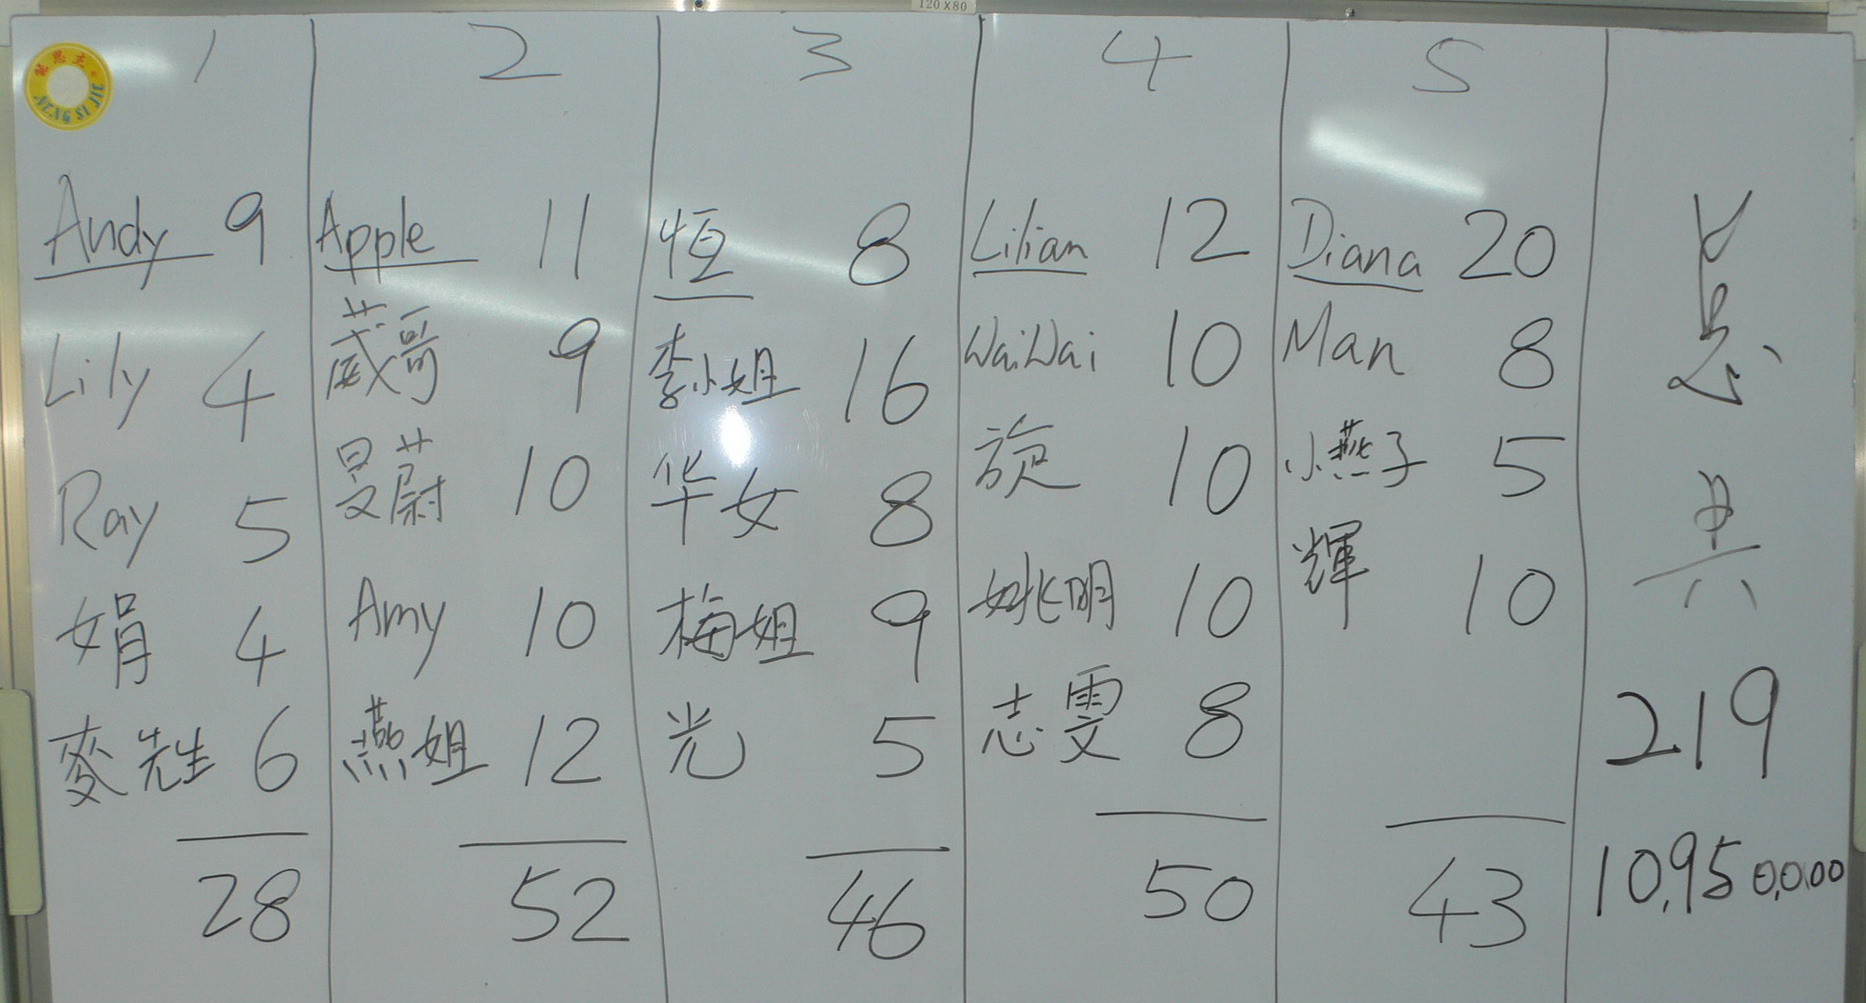 120X80
能思杰 NENG SI JIE
1 2 3 4 5
Andy 9 Apple 11 恒 8 Lilian 12 Diana 20
Lily 4 葳哥 9 李小姐 16 WaiWai 10 Man 8
Ray 5 旻蔚 10 华女 8 旋 10 小燕子 5
娟 4 Amy 10 梅姐 9 姚明 10 輝 10
麥先生 6 燕姐 12 光 5 志雯 8
28 52 46 50 43
总共
219
10,950,0.00